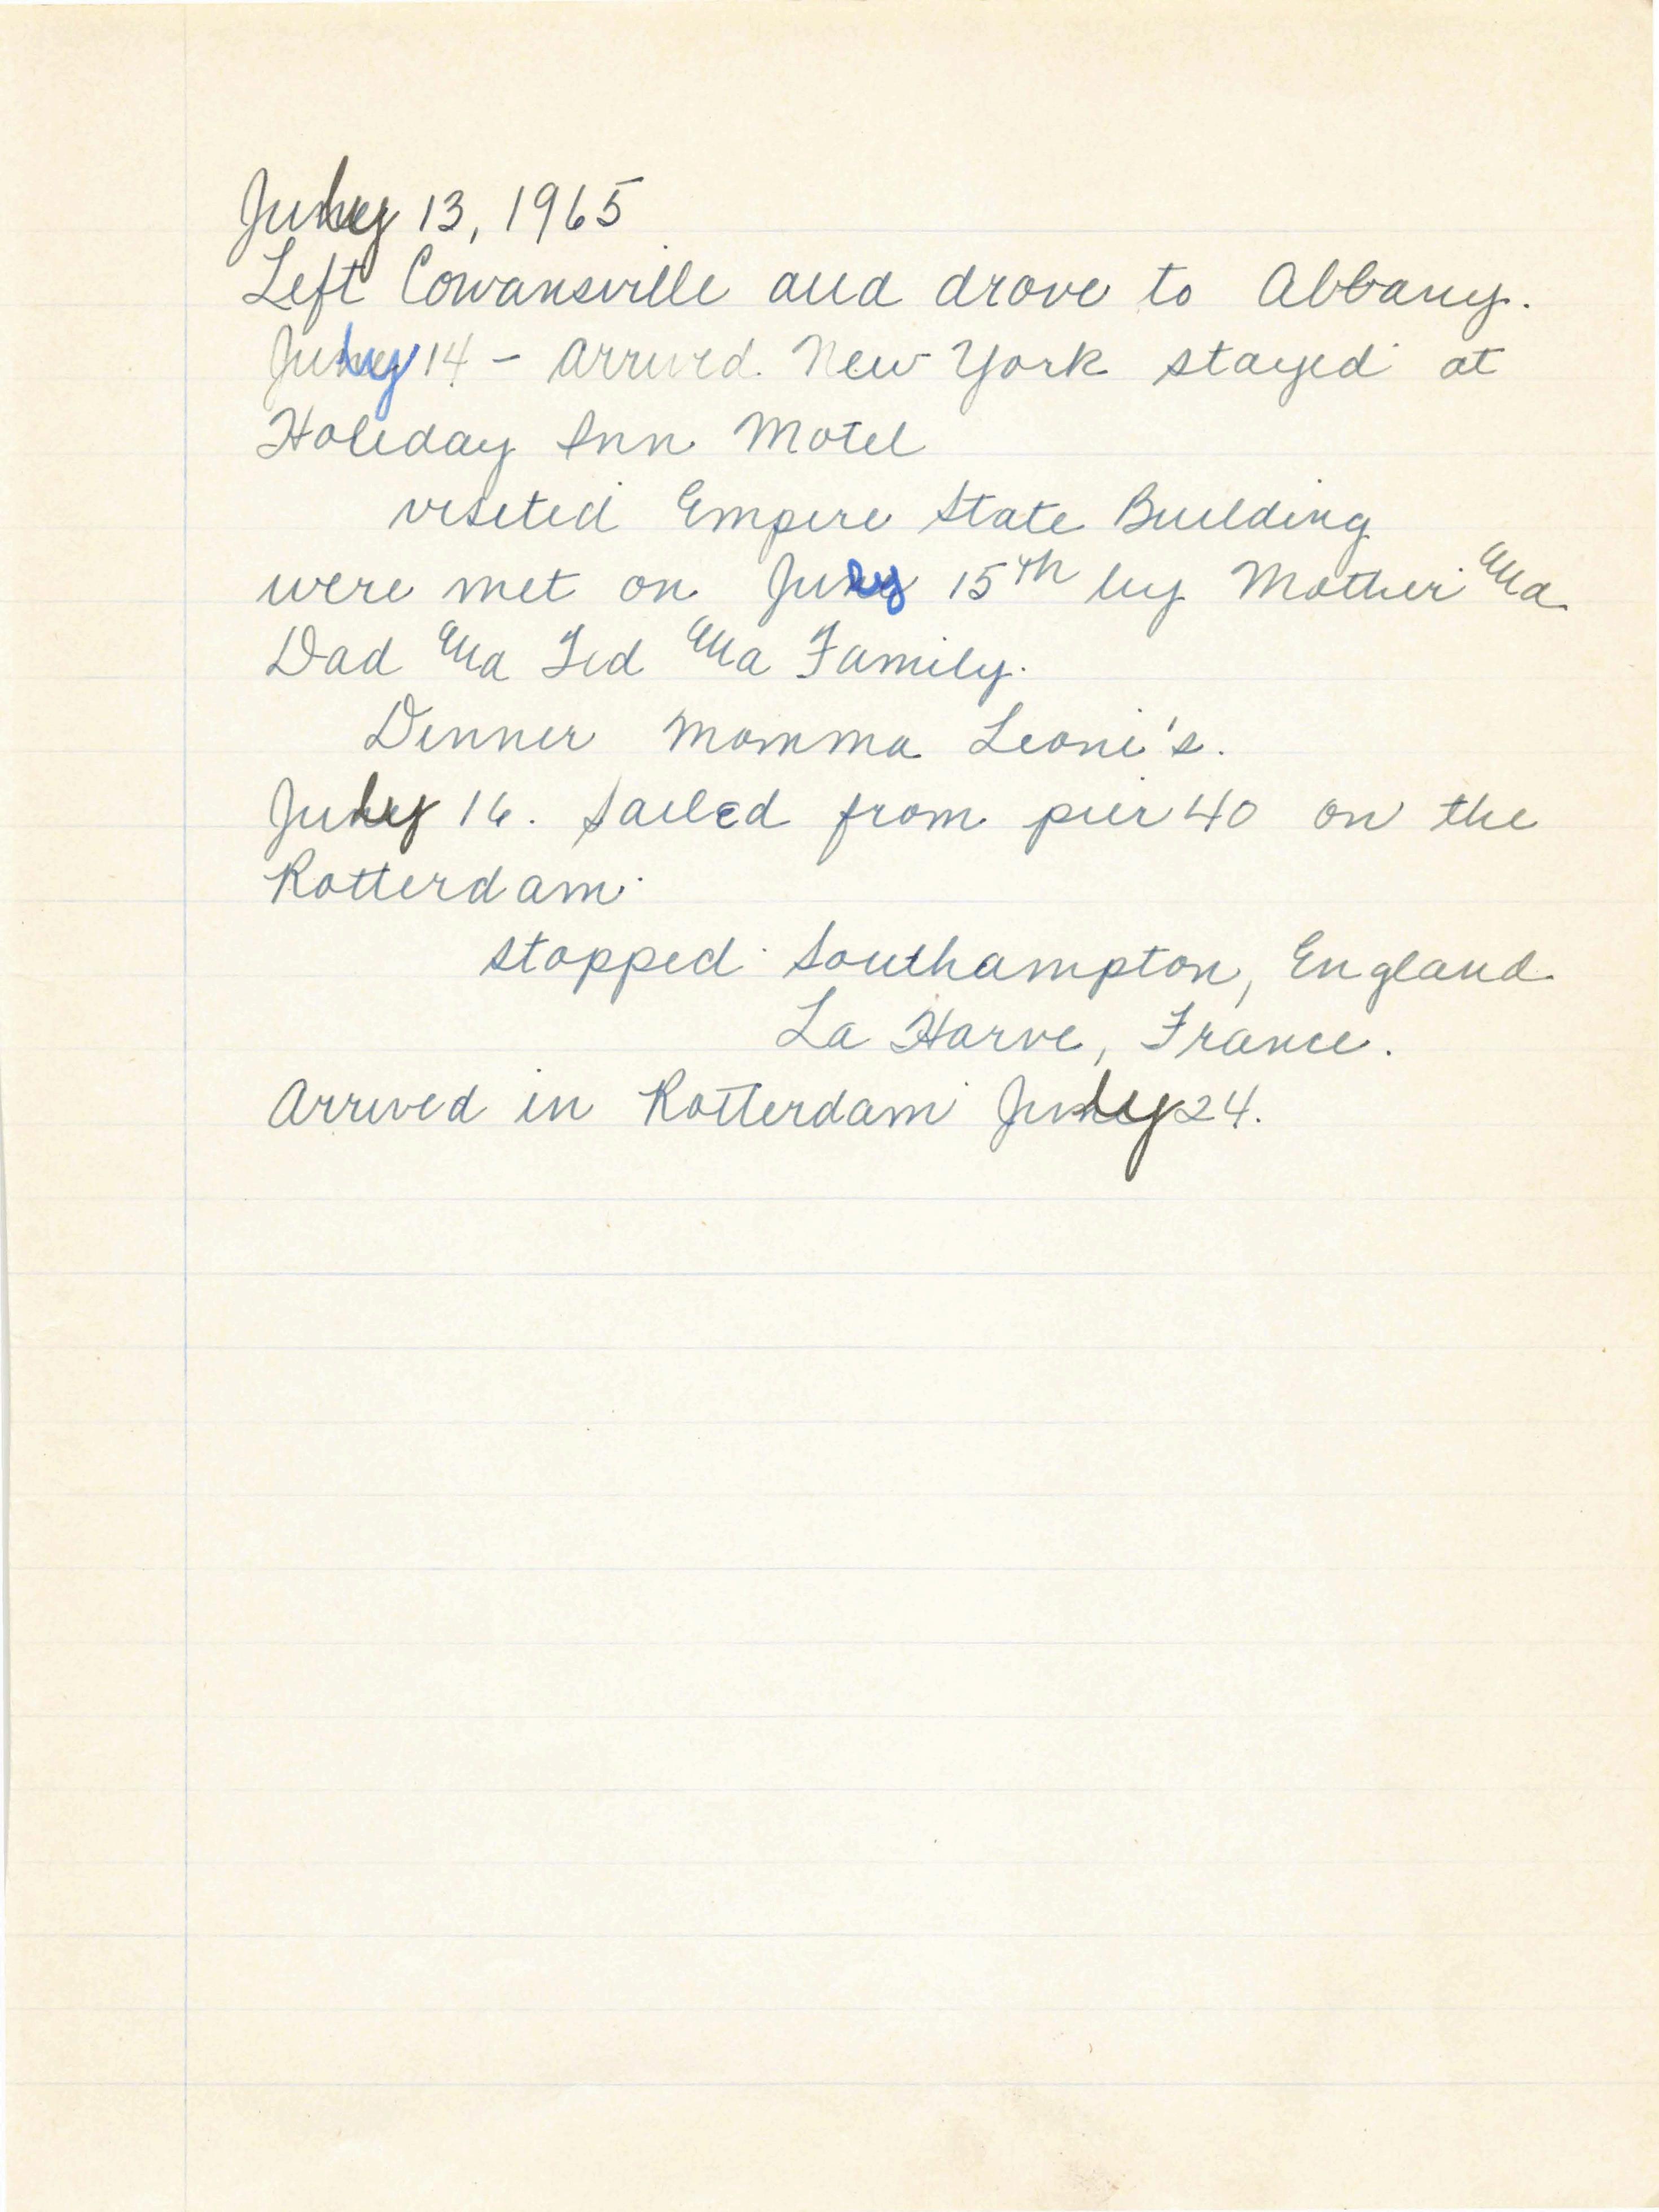 July 13, 1965
Left Cowansville and drove to Albany.
July 14 - Arrived New York stayed at
Holiday Inn Motel
visited Empire State Building
were met on July 15th by Mother and
Dad and Ted and Family.
Dinner Momma Leoni's.
July 16. Sailed from pier 40 on the
Rotterdam.
stopped Southampton, England
La Harve, France.
Arrived in Rotterdam July 24.